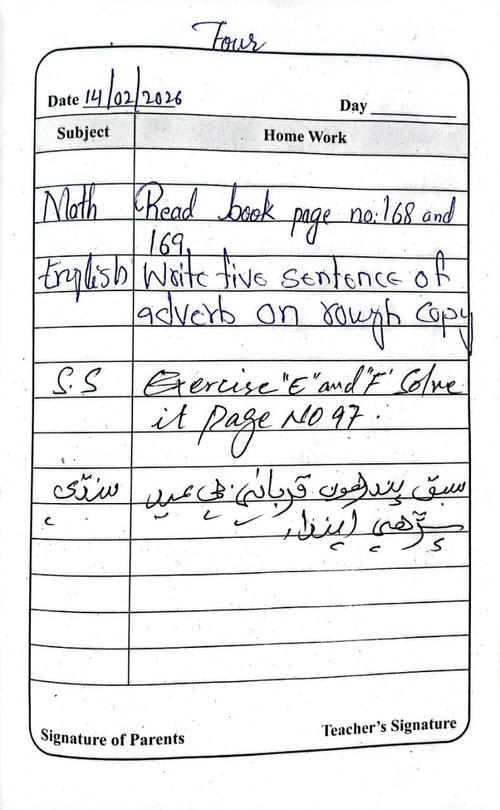 Four
Date 14/02/2026 Day
Subject Home Work
Math Read book page no:168 and
169.
English Write five sentence of
adverb on rough copy
S.S Exercise "E" and "F" Solve
it page NO 97.
سنڌي سبق پندرهون قرباني جي عيد
پڙهي ايندا.
Signature of Parents Teacher's Signature